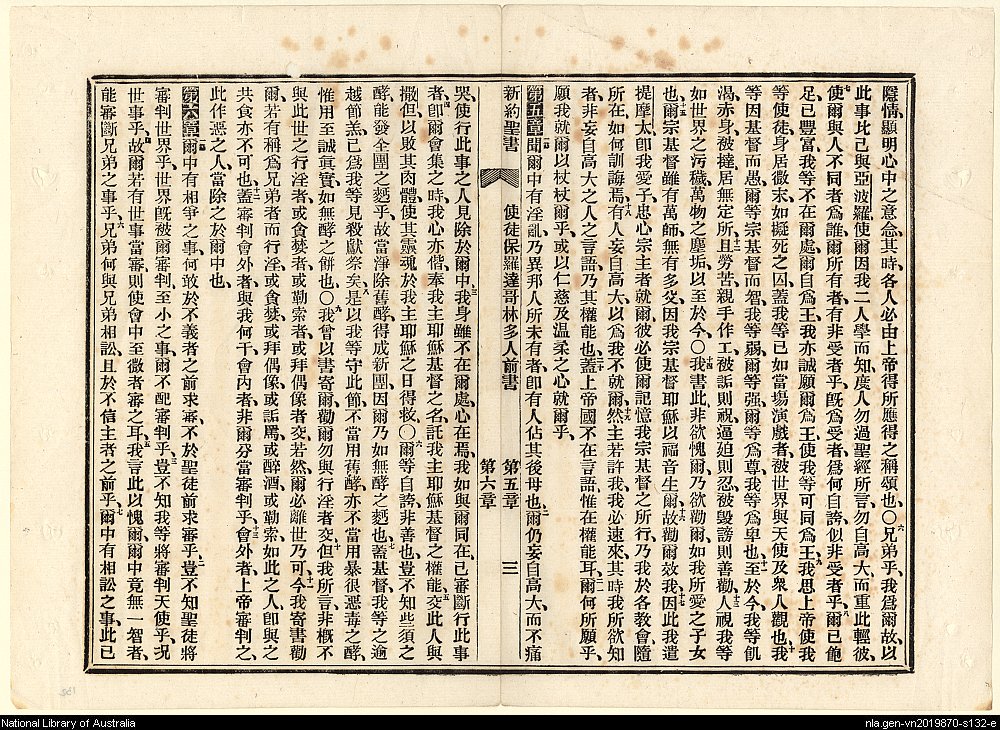 隱情、顯明心中之意念、其時、各人必由上帝得所應得之稱頌也、〇六兄弟乎、我爲爾故、以
此事比己與亞波羅、使爾因我二人學而知度人勿過聖經所言、勿自高大而重此輕彼、
七使爾與人不同者爲誰、爾所有者、有非受者乎、旣爲受者、爲何自誇似非受者乎、八爾已飽
足、已豐富、我等不在爾處、爾自爲王、我亦誠願爾爲王、使我等可同爲王、九我思上帝使我
等使徒、身居微末、如擬死之囚、蓋我等已如當塲演戲者、被世界與天使及衆人觀也、十我
等因基督而愚、爾等宗基督而智、我等弱、爾等强、爾等爲尊、我等爲卑也、十一至於今、我等飢
渴、赤身、被撻、居無定所、十二且勞苦、親手作工、被詬則祝、逼迫則忍、十三被毀謗則善勸、人視我等
如世界之污穢、萬物之塵垢、以至於今、〇十四我書此、非欲愧爾、乃欲勸爾、如我所愛之子女
也、十五爾宗基督、雖有萬師、無有多父、因我宗基督耶穌以福音生爾、十六故勸爾效我、十七因此我遣
提摩太、卽我愛子、忠心宗主者就爾、彼必使爾記憶我宗基督之所行、乃我於各教會、隨
所在如何訓誨焉、十八有人妄自高大、以爲我不就爾、十九然主若許我、我必速來、其時我所欲知
者、非妄自高大之人之言語、乃其權能也、二十蓋上帝國不在言語、惟在權能耳、二一爾何所願乎、
願我就爾以杖杖爾乎、或以仁慈及温柔之心就爾乎、
第五章一聞爾中有淫亂、乃異邦人所未有者、卽有人佔其後母也、二爾仍妄自高大、而不痛
新約聖書 使徒保羅達哥林多人前書 第五章 第六章 三
哭、使行此事之人、見除於爾中、三我身雖不在爾處、心在焉、我如與爾同在、已審斷行此事
者、四卽爾會集之時、我心亦偕、奉我主耶穌基督之名、託我主耶穌基督之權能、五交此人與
撒但、以敗其肉體、使其靈魂於我主耶穌之日得救、〇六爾等自誇、非善也、豈不知些須之
酵、能發全團之麪乎、七故當淨除舊酵、得成新團、因爾乃如無酵之麪也、蓋基督、我等之逾
越節羔、已爲我等見殺獻祭矣、八是以我等守此節、不當用舊酵、亦不當用暴很惡毒之酵、
惟用至誠眞實、如無酵之餅也、〇九我曾以書寄爾、勸爾勿與行淫者交、十但我所言、非槪不
與此世之行淫者、或貪婪者、或勒索者、或拜偶像者交、若然、爾必離世乃可、十一今我寄書勸
爾、若有稱爲兄弟者、而行淫、或貪婪、或拜偶像、或詬罵、或醉酒、或勒索、如此之人、卽與之
共食亦不可也、十二蓋審判會外者、與我何干、會內者、非爾分當審判乎、十三會外者、上帝審判之、
此作惡之人、當除之於爾中也、
第六章一爾中有相爭之事、何敢於不義者之前求審、不於聖徒前求審乎、二豈不知聖徒將
審判世界乎、世界旣被爾審判、至小之事、爾不配審判乎、三豈不知我等將審判天使乎、况
世事乎、四故爾若有世事當審、則使會中至微者審之耳、五我言此以愧爾、爾中竟無一智者、
能審斷兄弟之事乎、六兄弟何與兄弟相訟、且於不信主者之前乎、七爾中有相訟之事、此已
National Library of Australia
nla.gen-vn2019870-s132-e